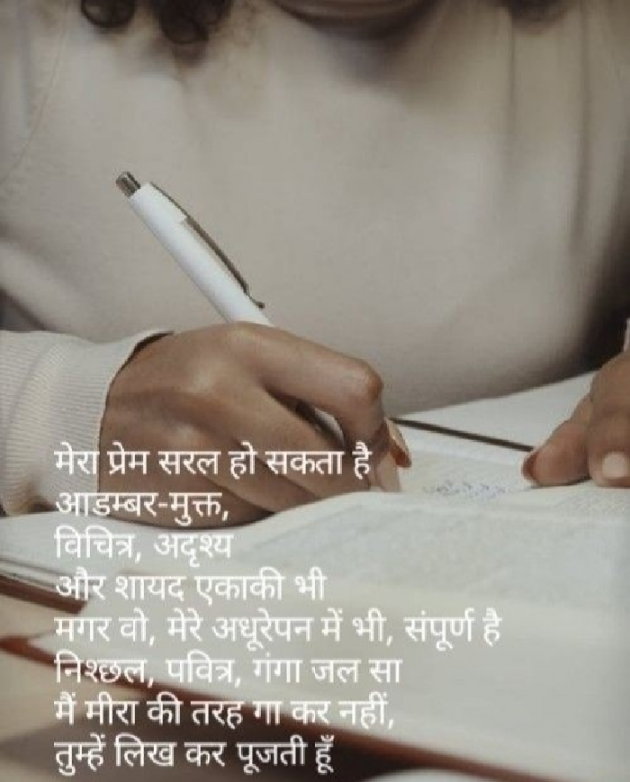 मेरा प्रेम सरल हो सकता है
आडम्बर-मुक्त,
विचित्र, अदृश्य
और शायद एकाकी भी
मगर वो, मेरे अधूरेपन में भी, संपूर्ण है
निश्छल, पवित्र, गंगा जल सा
मैं मीरा की तरह गा कर नहीं,
तुम्हें लिख कर पूजती हूँ